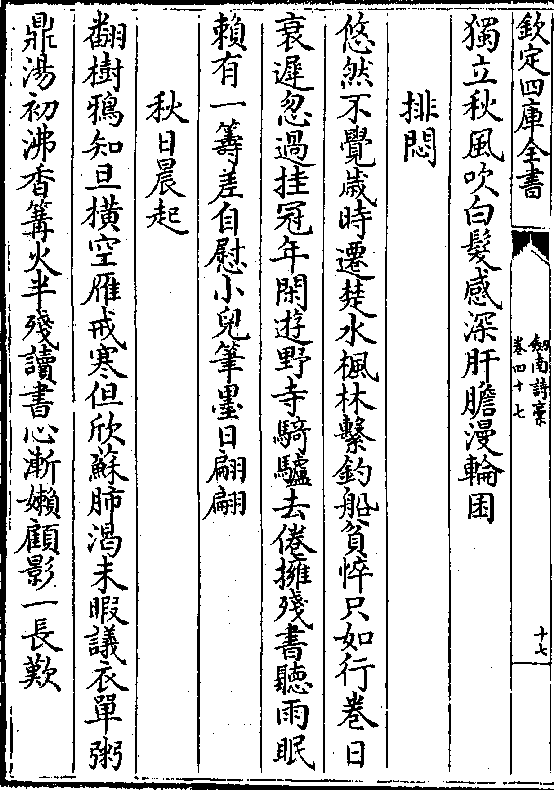 欽定四庫全書
劍南詩稾
卷四十七
十七
獨立秋風吹白髮感深肝膽漫輪囷
排悶
悠然不覺歲時遷楚水楓林繫釣船貧悴只如行巻日
衰遲忽過挂冠年閑遊野寺騎驢去倦擁殘書聽雨眠
賴有一籌差自慰小兒筆墨日翩翩
秋日晨起
翻樹鴉知旦橫空雁戒寒但欣蘇肺渴未暇議衣單粥
鼎湯初沸香篝火半殘讀書心漸嬾顧影一長歎